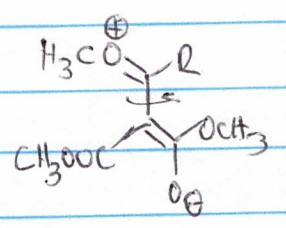 ⊕
H₃CO R
OCH₃
CH₃OOC
O⊖